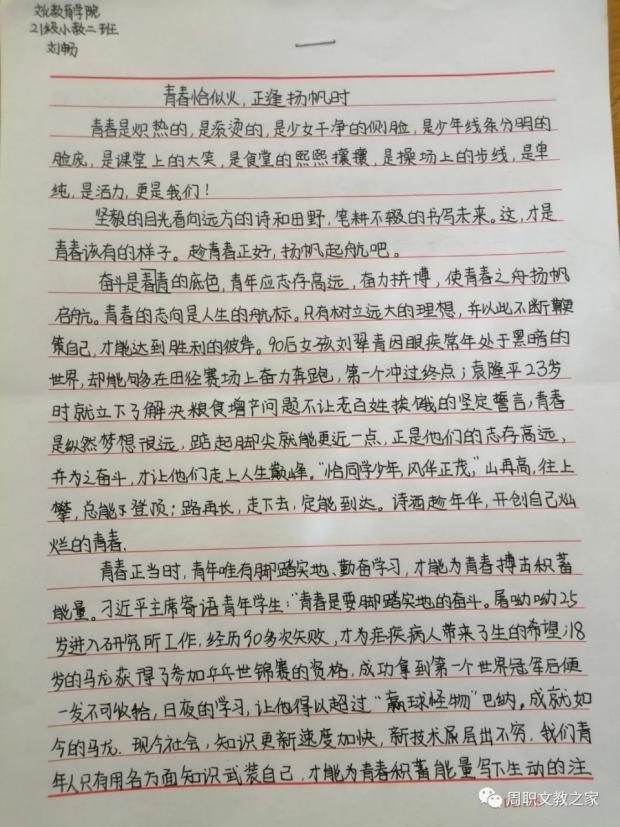 文化教育学院
21级小教二班
刘畅
青春恰似火，正逢扬帆时
青春是炽热的，是滚烫的，是少女干净的侧脸，是少年线条分明的
脸庞，是课堂上的大笑，是食堂的熙熙攘攘，是操场上的步线，是单
纯，是活力，更是我们！
坚毅的目光看向远方的诗和田野，笔耕不辍的书写未来。这，才是
青春该有的样子。趁青春正好，扬帆起航吧。
奋斗是青春的底色，青年应志存高远，奋力拼博，使青春之舟扬帆
启航。青春的志向是人生的航标。只有树立远大的理想，并以此不断鞭
策自己，才能达到胜利的彼岸。90后女孩刘翠青因眼疾常年处于黑暗的
世界，却能够在田径赛场上奋力奔跑，第一个冲过终点；袁隆平23岁
时就立下了解决粮食增产问题不让老百姓挨饿的坚定誓言，青春
是纵然梦想很远，踮起脚尖就能更近一点，正是他们的志存高远，
并为之奋斗，才让他们走上人生巅峰。“恰同学少年，风华正茂，”山再高，往上
攀，总能登顶；路再长，走下去，定能到达。诗酒趁年华，开创自己灿
烂的青春.
青春正当时，青年唯有脚踏实地、勤奋学习，才能为青春搏击积蓄
能量。习近平主席寄语青年学生：“青春是要脚踏实地的奋斗。屠呦呦25
岁进入研究所工作，经历90多次失败，才为疟疾病人带来了生的希望；18
岁的马龙获得了参加乒乓世锦赛的资格，成功拿到第一个世界冠军后便
一发不可收拾，日夜的学习，让他得以超过“赢球怪物”巴纳。成就如
今的马龙.现今社会，知识更新速度加快，新技术层层出不穷.我们青
年人只有用各方面知识武装自己，才能为青春积蓄能量写下生动的注
周职文教之家